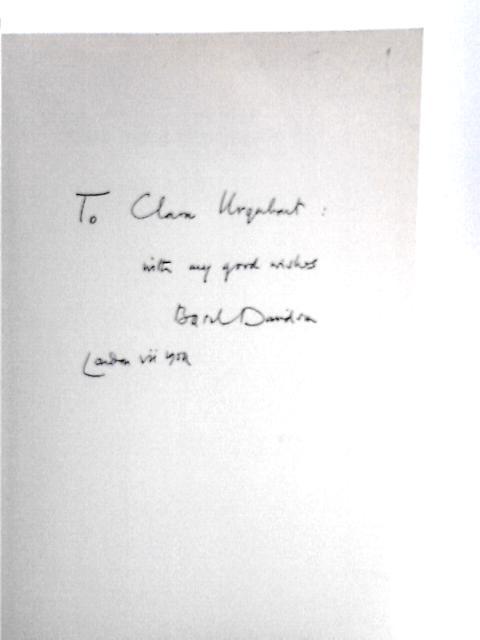 To Clara Urquhart :
with my good wishes
Basil Davidson
London vii